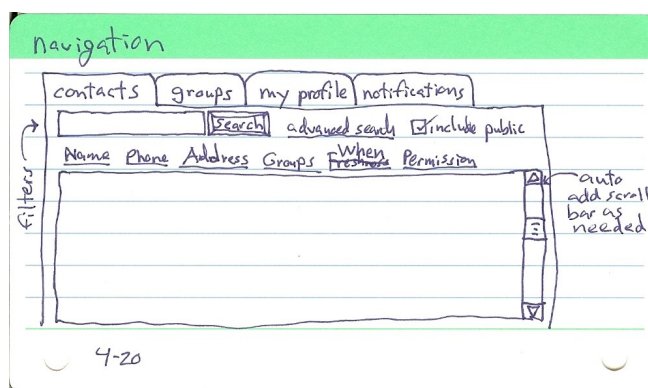 navigation
contacts groups my profile notifications
search advanced search include public
Name Phone Address Groups When Freshness Permission
filters
auto
add scroll
bar as
needed
4-20